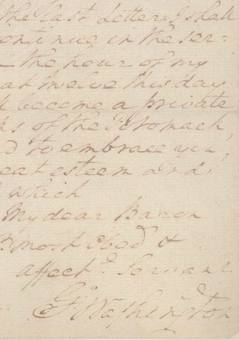 the last Letter I shall
continue in the ser-
the hour of my
at twelve this day
become a private
ks of the Potomack,
to embrace you,
eat esteem and
which
My dear Baron
most obed.t &
affect.e Servant
G:Washington